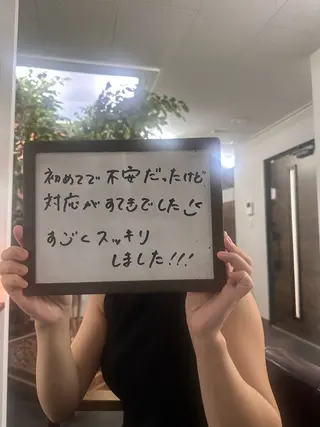 初めてで不安だったけど
対応がすてきでした
すごくスッキリ
しました!!!